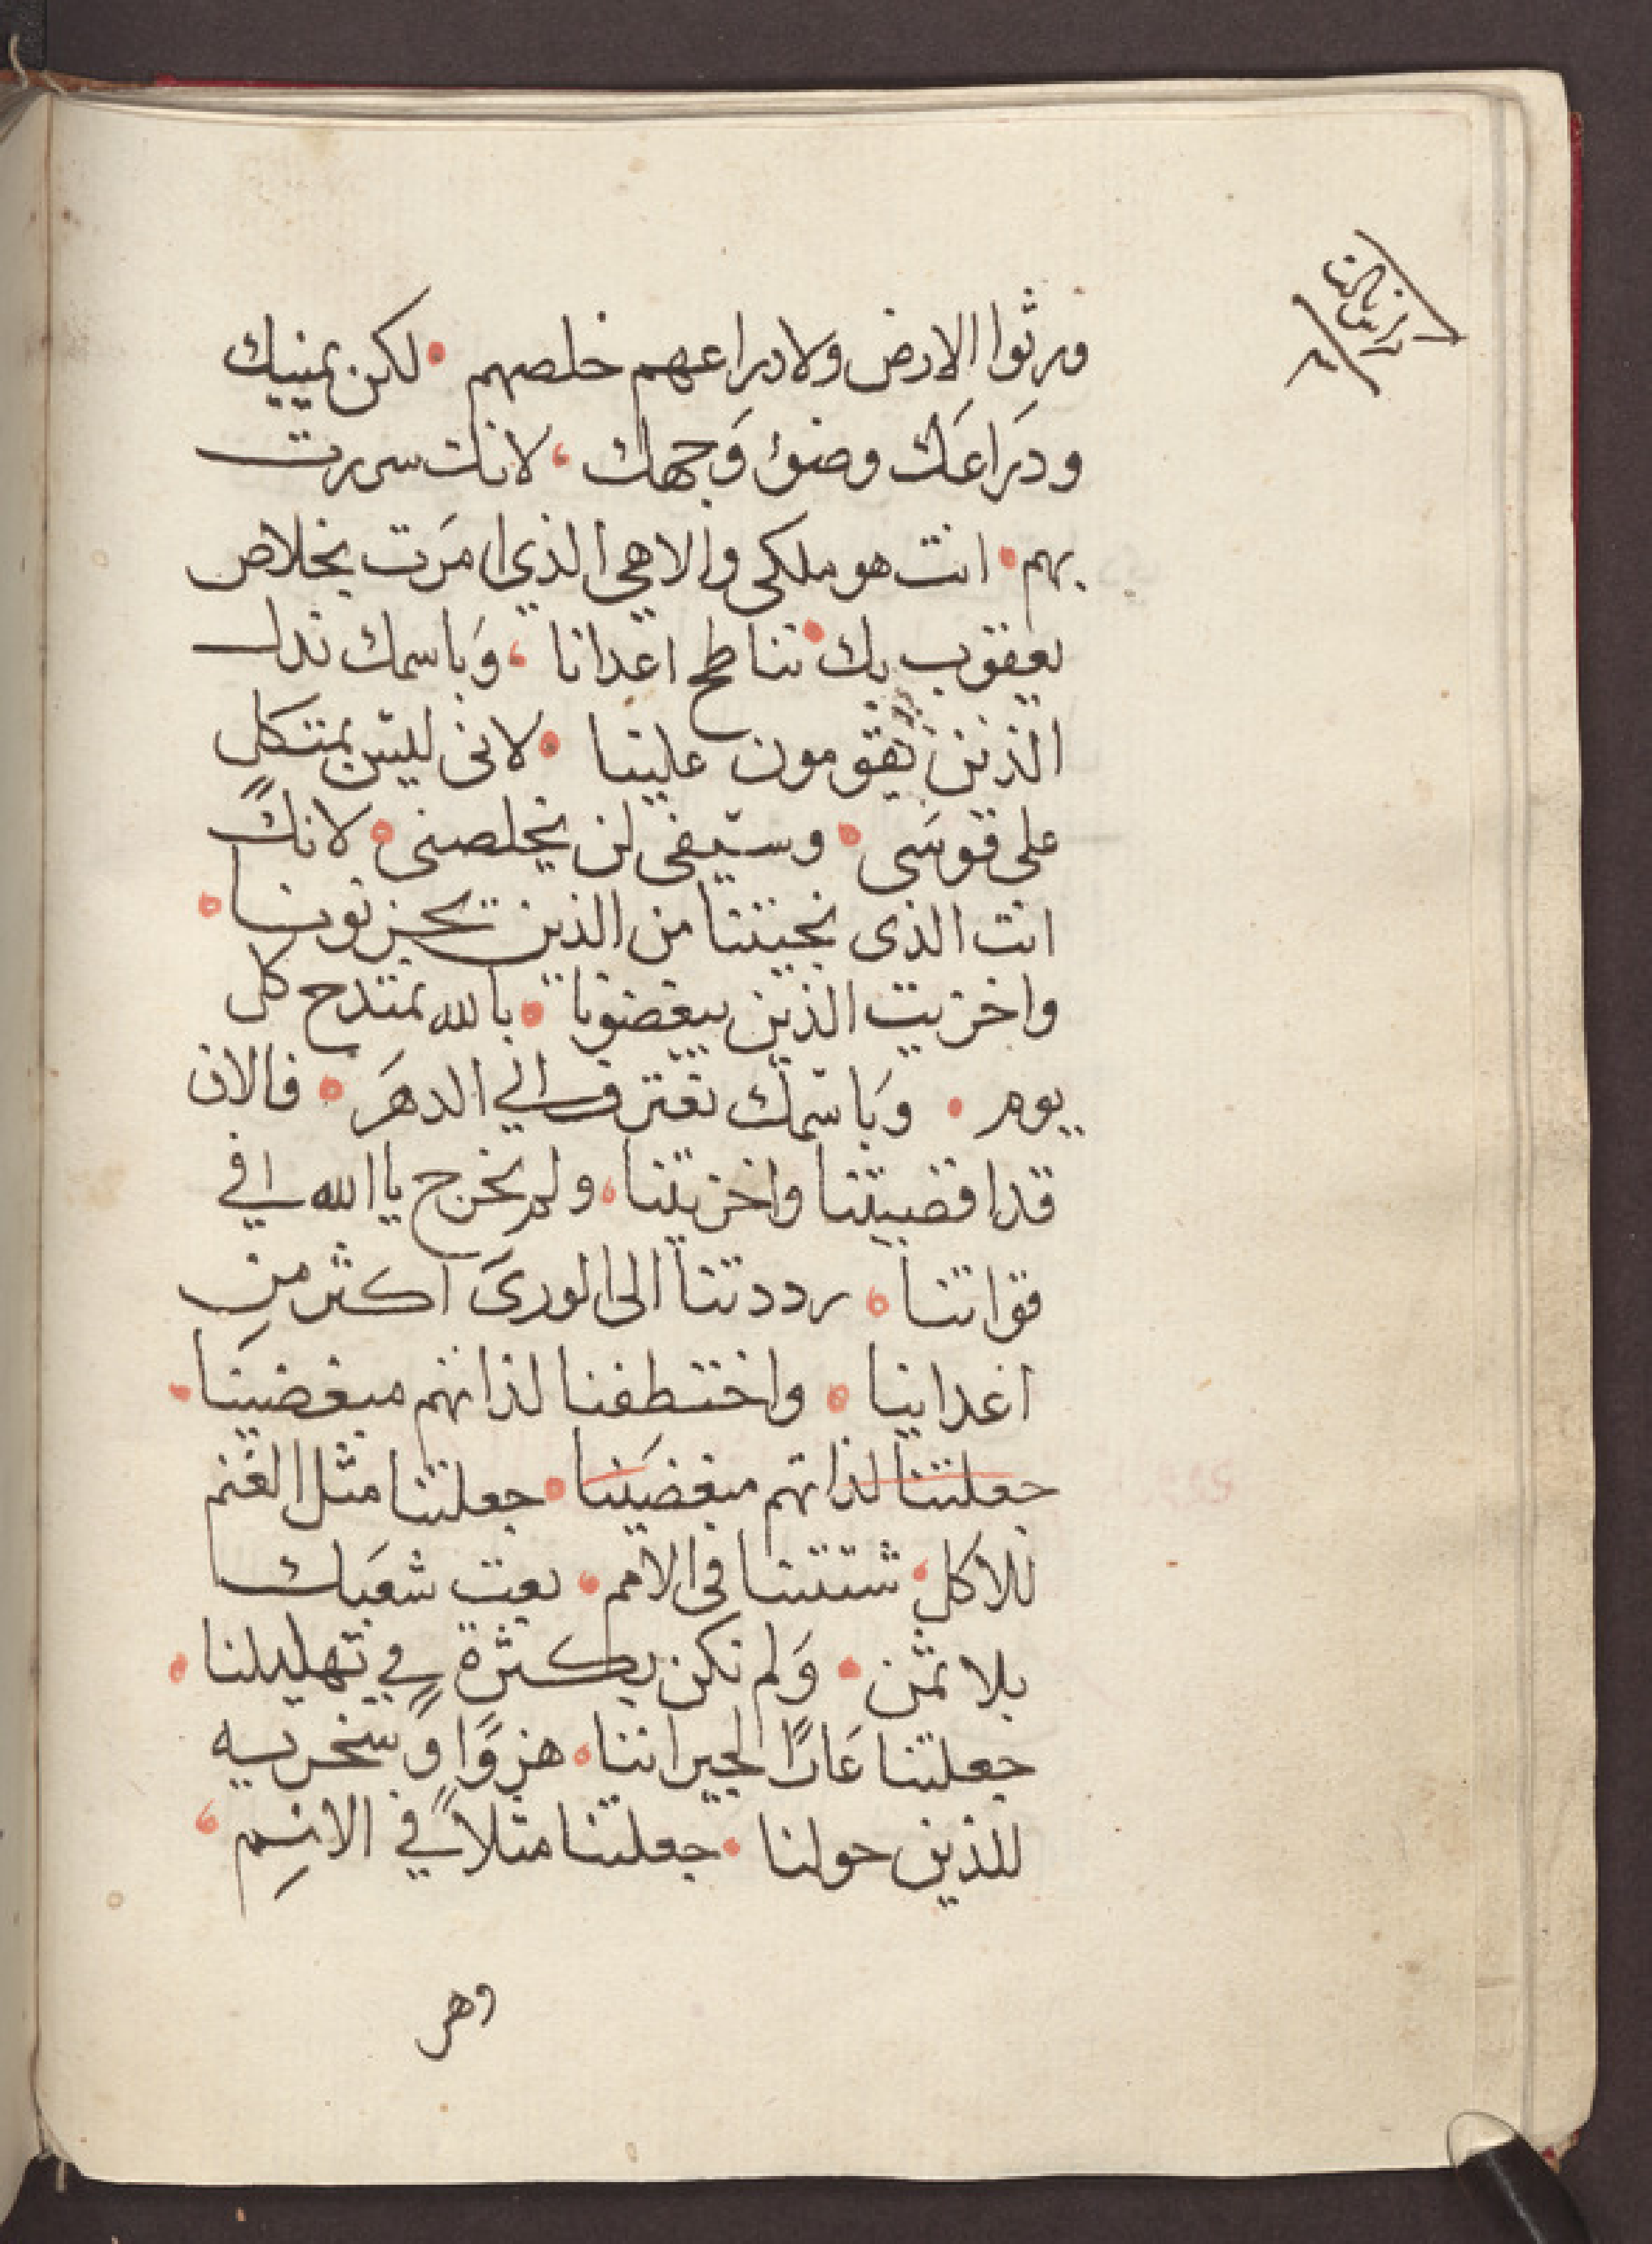 ورثوا الارض ولا دراعهم خلصهم • لكن يمينيك
ودَراعَك وضوء وَجهك ، لانك سررت
بهم • انت هو ملكى والاهي الذي امَرَت بخلاص
يعقوب • بك نناطح اعدانا ، وَباسمك ندل
الذين يقومون علينا • لانى ليس بمتكل
على قوسَى • وسيفى لن يخلصنى • لانكً
انت الذى نجيتنا من الذين يحزنونا •
واخزيت الذين يبغضونا • بالله نمتدح كل
يوم • وَباسمك نعترف الي الدهَر • فالان
قد اقضيتنا واخزيتنا ، ولم تخرج يا الله في
قواتنا ، رددتنا الى الورىَ اكثر من
اعداينا • واختطفنا لذاتهم مبغضينا •
جعلتنا لذاتهم مبغضينا • جعلتنا مثل الغنم
للاكل ، شتتتنا فى الامم ، بعت شعَبك
بلا ثمن • وَلم تكن بكثرة في تهليلنا •
جعلتنا عَارًا لجيراننا • هزوًا وسخريه
للذين حولنا • جعلتنا مثلاً في الامم ،
وهز